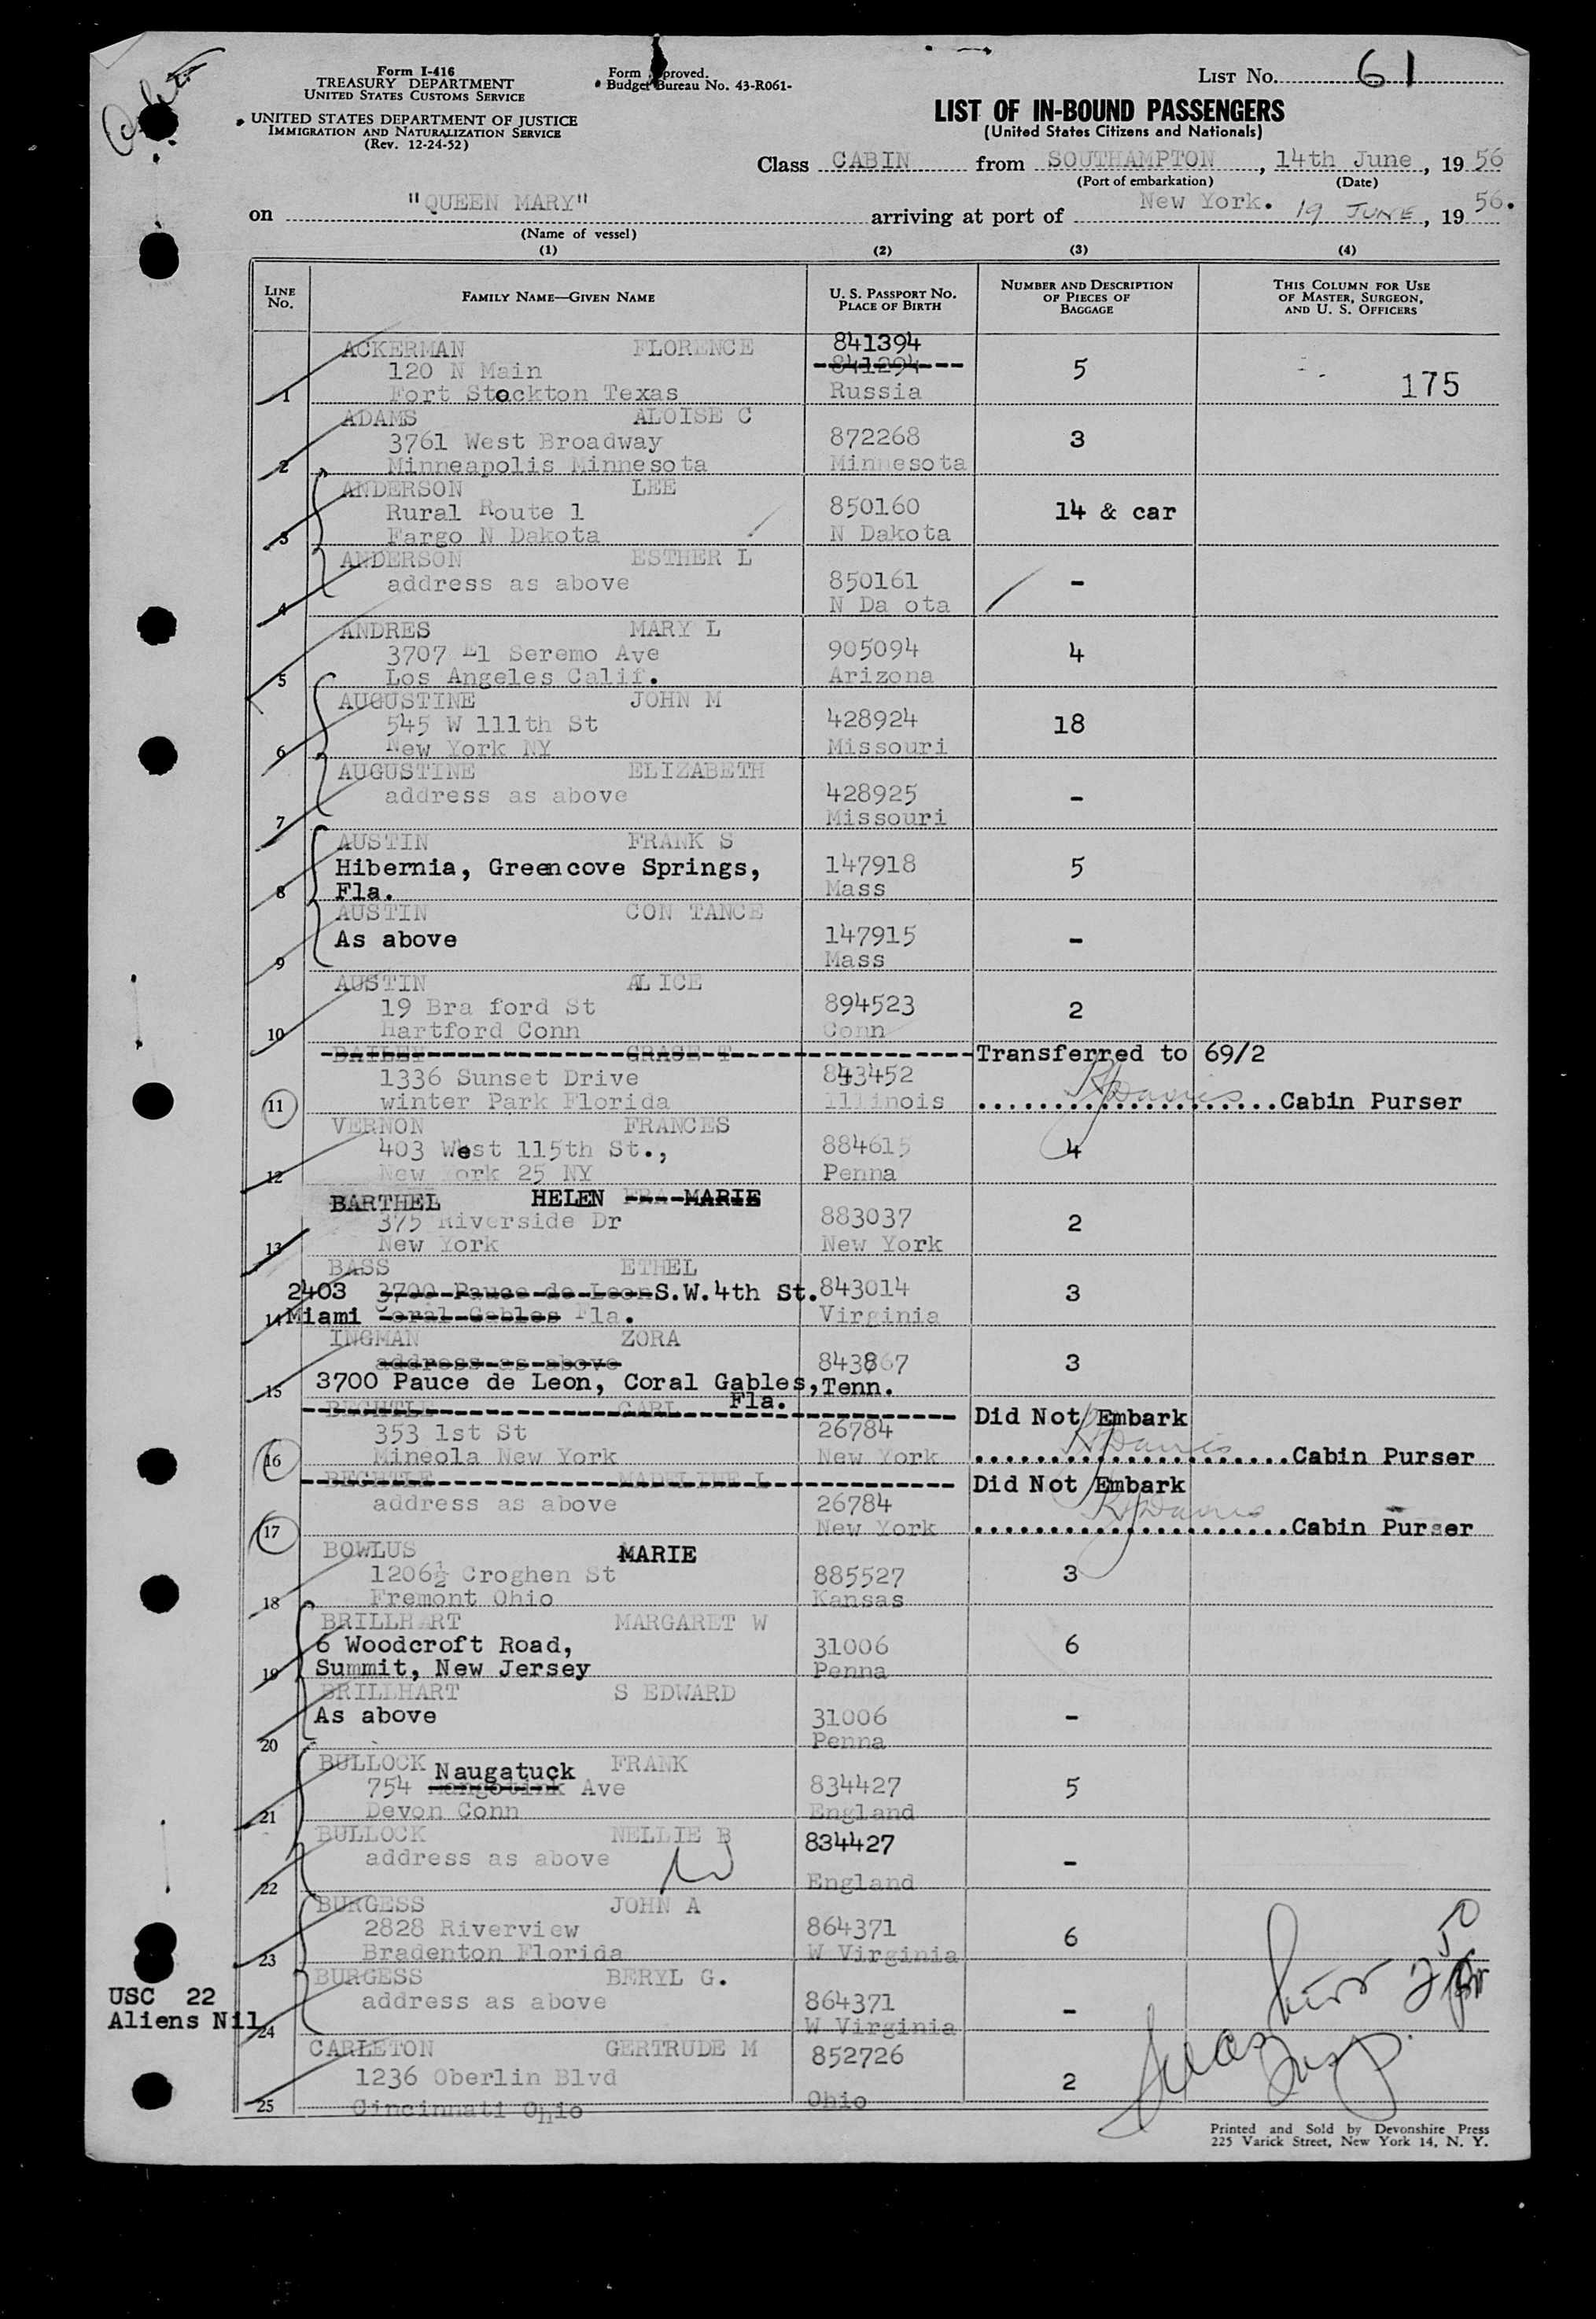 Form I-416
TREASURY DEPARTMENT
UNITED STATES CUSTOMS SERVICE
UNITED STATES DEPARTMENT OF JUSTICE
IMMIGRATION AND NATURALIZATION SERVICE
(Rev. 12-24-52)
Form Approved.
Budget Bureau No. 43-R061-
LIST No. 61
LIST OF IN-BOUND PASSENGERS
(United States Citizens and Nationals)
Class CABIN from SOUTHAMPTON, 14th June, 1956
(Port of embarkation) (Date)
on "QUEEN MARY" arriving at port of New York. 19 JUNE, 1956.
(Name of vessel)
(1) (2) (3) (4)
LINE No. FAMILY NAME—GIVEN NAME U. S. PASSPORT No. PLACE OF BIRTH NUMBER AND DESCRIPTION OF PIECES OF BAGGAGE THIS COLUMN FOR USE OF MASTER, SURGEON, AND U. S. OFFICERS
ACKERMAN FLORENCE 841394
120 N Main 841294 5
1 Fort Stockton Texas Russia 175
ADAMS ALOISE C
3761 West Broadway 872268 3
2 Minneapolis Minnesota Minnesota
ANDERSON LEE
Rural Route 1 850160 14 & car
3 Fargo N Dakota N Dakota
ANDERSON ESTHER L
address as above 850161 -
4 N Da ota
ANDRES MARY L
3707 El Seremo Ave 905094 4
5 Los Angeles Calif. Arizona
AUGUSTINE JOHN M
545 W 111th St 428924 18
6 New York NY Missouri
AUGUSTINE ELIZABETH
address as above 428925 -
7 Missouri
AUSTIN FRANK S
Hibernia, Greencove Springs, 147918 5
8 Fla. Mass
AUSTIN CON TANCE
As above 147915 -
9 Mass
AUSTIN ALICE
19 Bra ford St 894523 2
10 Hartford Conn Conn
BAILEY GRACE T Transferred to 69/2
1336 Sunset Drive 843452
11 winter Park Florida Illinois ....................Cabin Purser
VERNON FRANCES
403 West 115th St., 884615 4
12 New York 25 NY Penna
BARTHEL HELEN FRA MARIE
375 Riverside Dr 883037 2
13 New York New York
BASS ETHEL
2403 3700 Pauce de Leon S.W.4th St. 843014 3
14 Miami Coral Gables Fla. Virginia
INGMAN ZORA
address as above 843867 3
15 3700 Pauce de Leon, Coral Gables, Tenn.
Fla.
BECHTLE CARL Did Not Embark
353 1st St 26784
16 Mineola New York New York R Davis ....................Cabin Purser
BECHTLE MADELINE L Did Not Embark
address as above 26784
17 New York R Davis ....................Cabin Purser
BOWLUS MARIE
1206½ Croghen St 885527 3
18 Fremont Ohio Kansas
BRILLHART MARGARET W
6 Woodcroft Road, 31006 6
19 Summit, New Jersey Penna
BRILLHART S EDWARD
As above 31006 -
20 Penna
BULLOCK Naugatuck FRANK
754 Ave 834427 5
21 Devon Conn England
BULLOCK NELLIE B 834427
address as above -
22 England
BURGESS JOHN A
2828 Riverview 864371 6
23 Bradenton Florida W Virginia
BURGESS BERYL G.
USC 22 address as above 864371 -
Aliens Nil 24 W Virginia
CARLETON GERTRUDE M 852726
1236 Oberlin Blvd 2
25 Cincinnati Ohio Ohio
Printed and Sold by Devonshire Press
225 Varick Street, New York 14, N. Y.